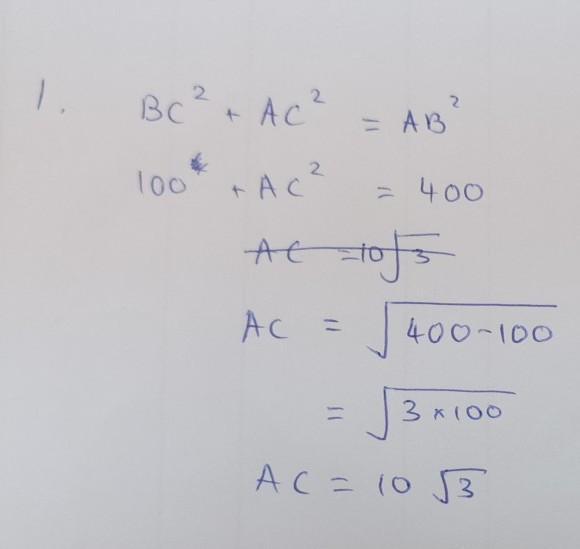 1. BC² + AC² = AB²
100 + AC² = 400
AC = 10√3
AC = √(400-100)
= √(3×100)
AC = 10 √3